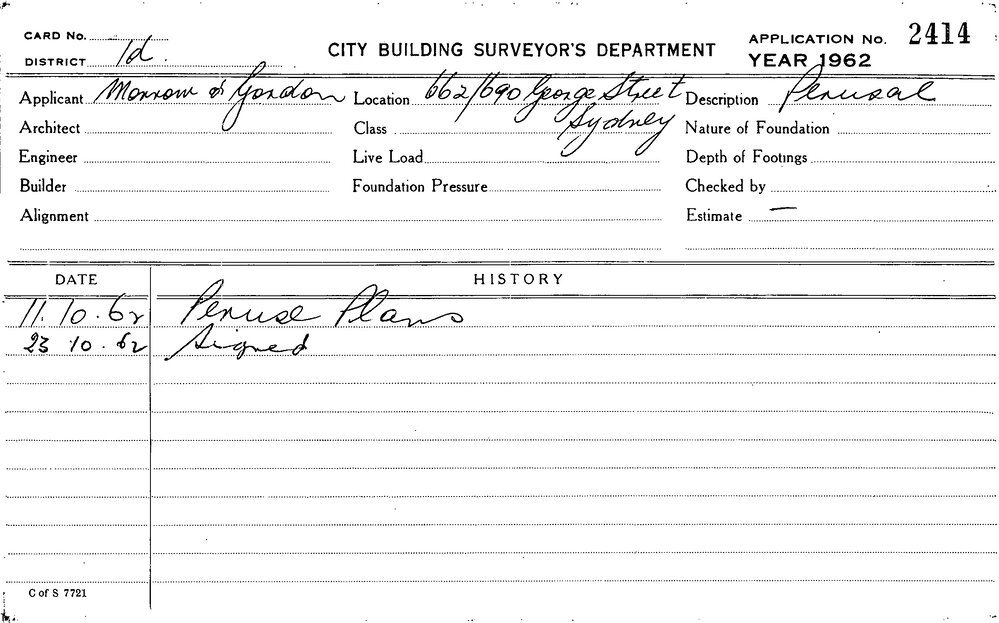 CARD No.
DISTRICT 1d.
CITY BUILDING SURVEYOR'S DEPARTMENT
APPLICATION No. 2414
YEAR 1962
Applicant Morrow & Gordon Location 662/690 George Street Description Perusal
Architect Class Sydney Nature of Foundation
Engineer Live Load Depth of Footings
Builder Foundation Pressure Checked by
Alignment Estimate —
DATE HISTORY
11.10.62 Peruse Plans
23 10.62 Signed
C of S 7721